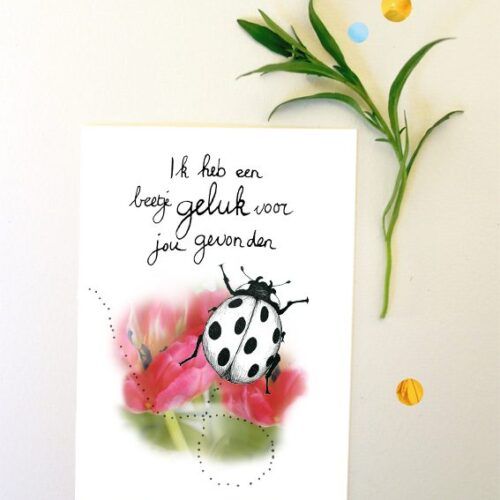 Ik heb een
beetje geluk voor
jou gevonden